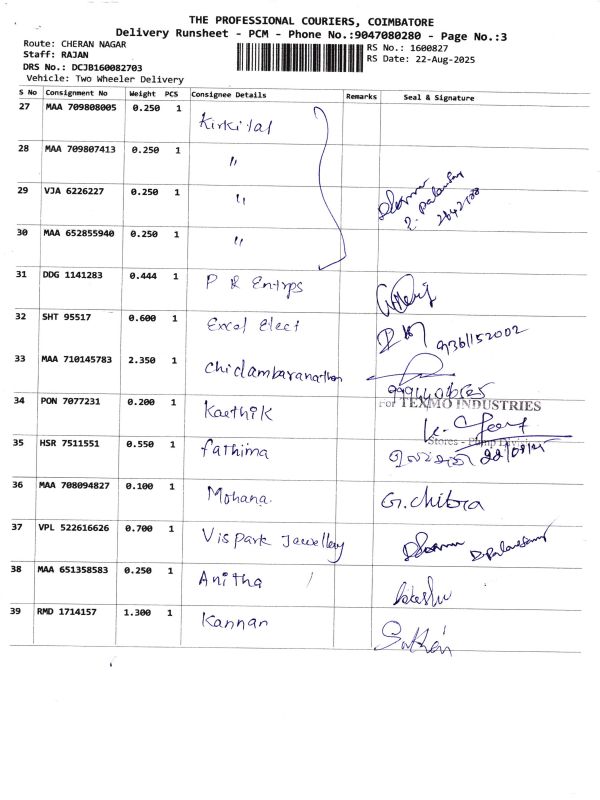 THE PROFESSIONAL COURIERS, COIMBATORE
Delivery Runsheet - PCM - Phone No.:9047080280 - Page No.:3
Route: CHERAN NAGAR
RS No.: 1600827
Staff: RAJAN
RS Date: 22-Aug-2025
DRS No.: DCJB160082703
Vehicle: Two Wheeler Delivery
S No Consignment No Weight PCS Consignee Details Remarks Seal & Signature
27 MAA 709808005 0.250 1 Kirkilal
28 MAA 709807413 0.250 1 "
29 VJA 6226227 0.250 1 "
30 MAA 652855940 0.250 1 "
31 DDG 1141283 0.444 1 P R Entrps
32 SHT 95517 0.600 1 Excel Elect 9361152002
33 MAA 710145783 2.350 1 Chidambaranathan
34 PON 7077231 0.200 1 Kaethik
For TEXMO INDUSTRIES
Stores - Pump Division
35 HSR 7511551 0.550 1 fathima
36 MAA 708094827 0.100 1 Mohana. G.chibra
37 VPL 522616626 0.700 1 Vispark Jewellery
38 MAA 651358583 0.250 1 Anitha
39 RMD 1714157 1.300 1 Kannan